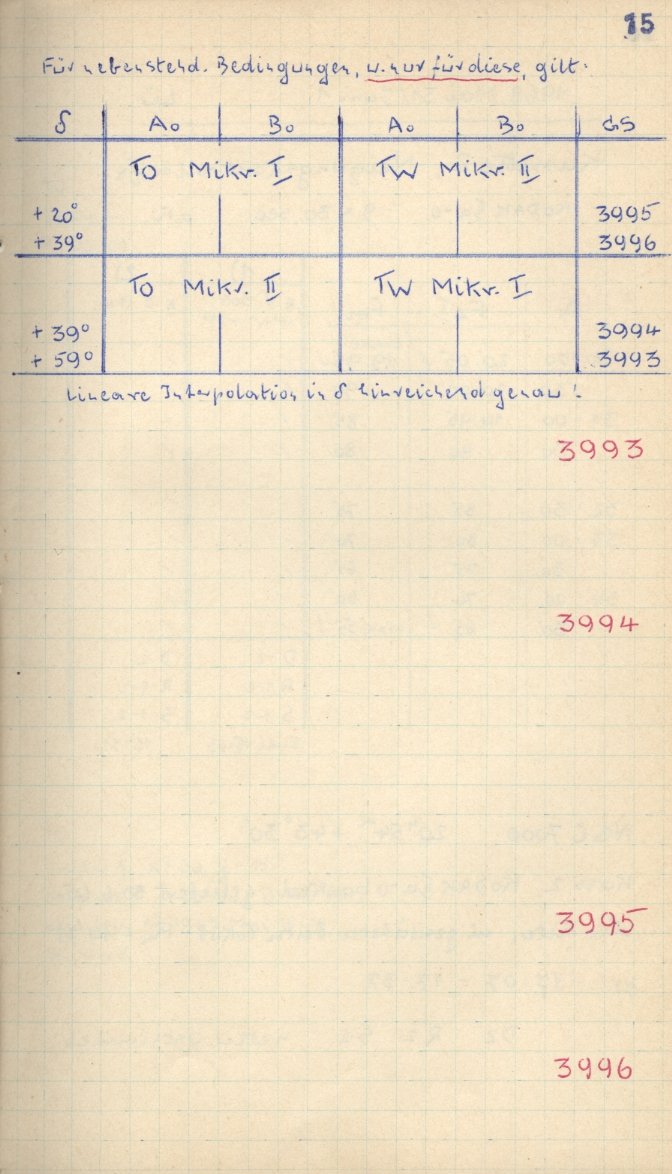 15
Für nebenstehd. Bedingungen, u. nur für diese, gilt:
δ A₀ B₀ A₀ B₀ GS
TO Mikr. I TW Mikr. II
+ 20° 3995
+ 39° 3996
TO Mikr. II TW Mikr. I
+ 39° 3994
+ 59° 3993
Lineare Interpolation in δ hinreichend genau!
3993
3994
3995
3996